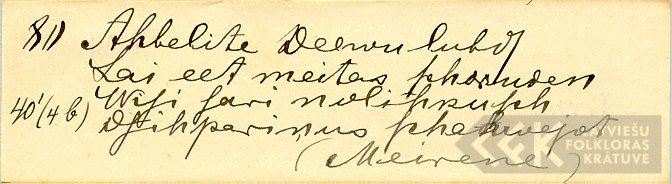 811 Ahbelite Deewu lubds
Lai eet meitas schoruden
40'(4 b) Wisi sari nolihkusch
Dsihparinus schahwejot
(Meirene)
LATVIEŠU
FOLKLORAS
KRĀTUVE